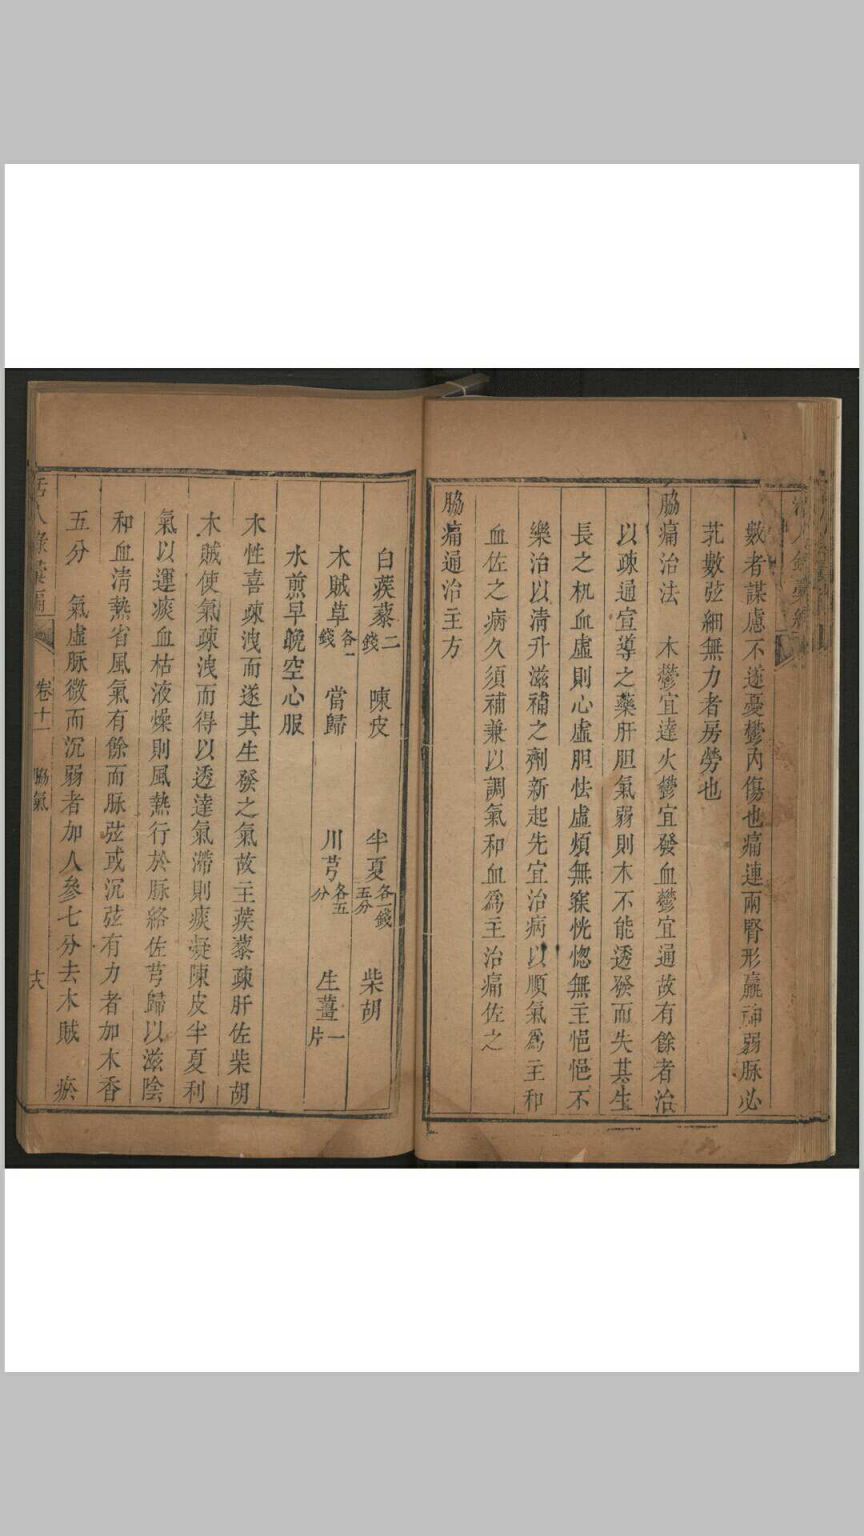 數者謀慮不遂憂鬱內傷也痛連兩腎形羸神弱脉必
芤數弦細無力者房勞也
脇痛治法　木鬱宜達火鬱宜發血鬱宜通故有餘者治
以疎通宣導之藥肝胆氣弱則木不能透發而失其生
長之机血虛則心虛胆怯虛煩無寐恍惚無主悒悒不
樂治以清升滋補之劑新起先宜治病以順氣為主和
血佐之病久須補兼以調氣和血為主治痛佐之
脇痛通治主方
白蒺藜二錢　陳皮　半夏各一錢五分　柴胡
木賊草各一錢　當歸　川芎各五分　生薑一片
水煎早晚空心服
木性喜疎洩而遂其生發之氣故主蒺藜疎肝佐柴胡
木賊使氣疎洩而得以透達氣滯則痰凝陳皮半夏利
氣以運痰血枯液燥則風熱行於脉絡佐芎歸以滋陰
和血清熱省風氣有餘而脉弦或沉弦有力者加木香
五分　氣虛脉微而沉弱者加人參七分去木賊　瘀
活人錄彙編　卷十一　脇氣　十八